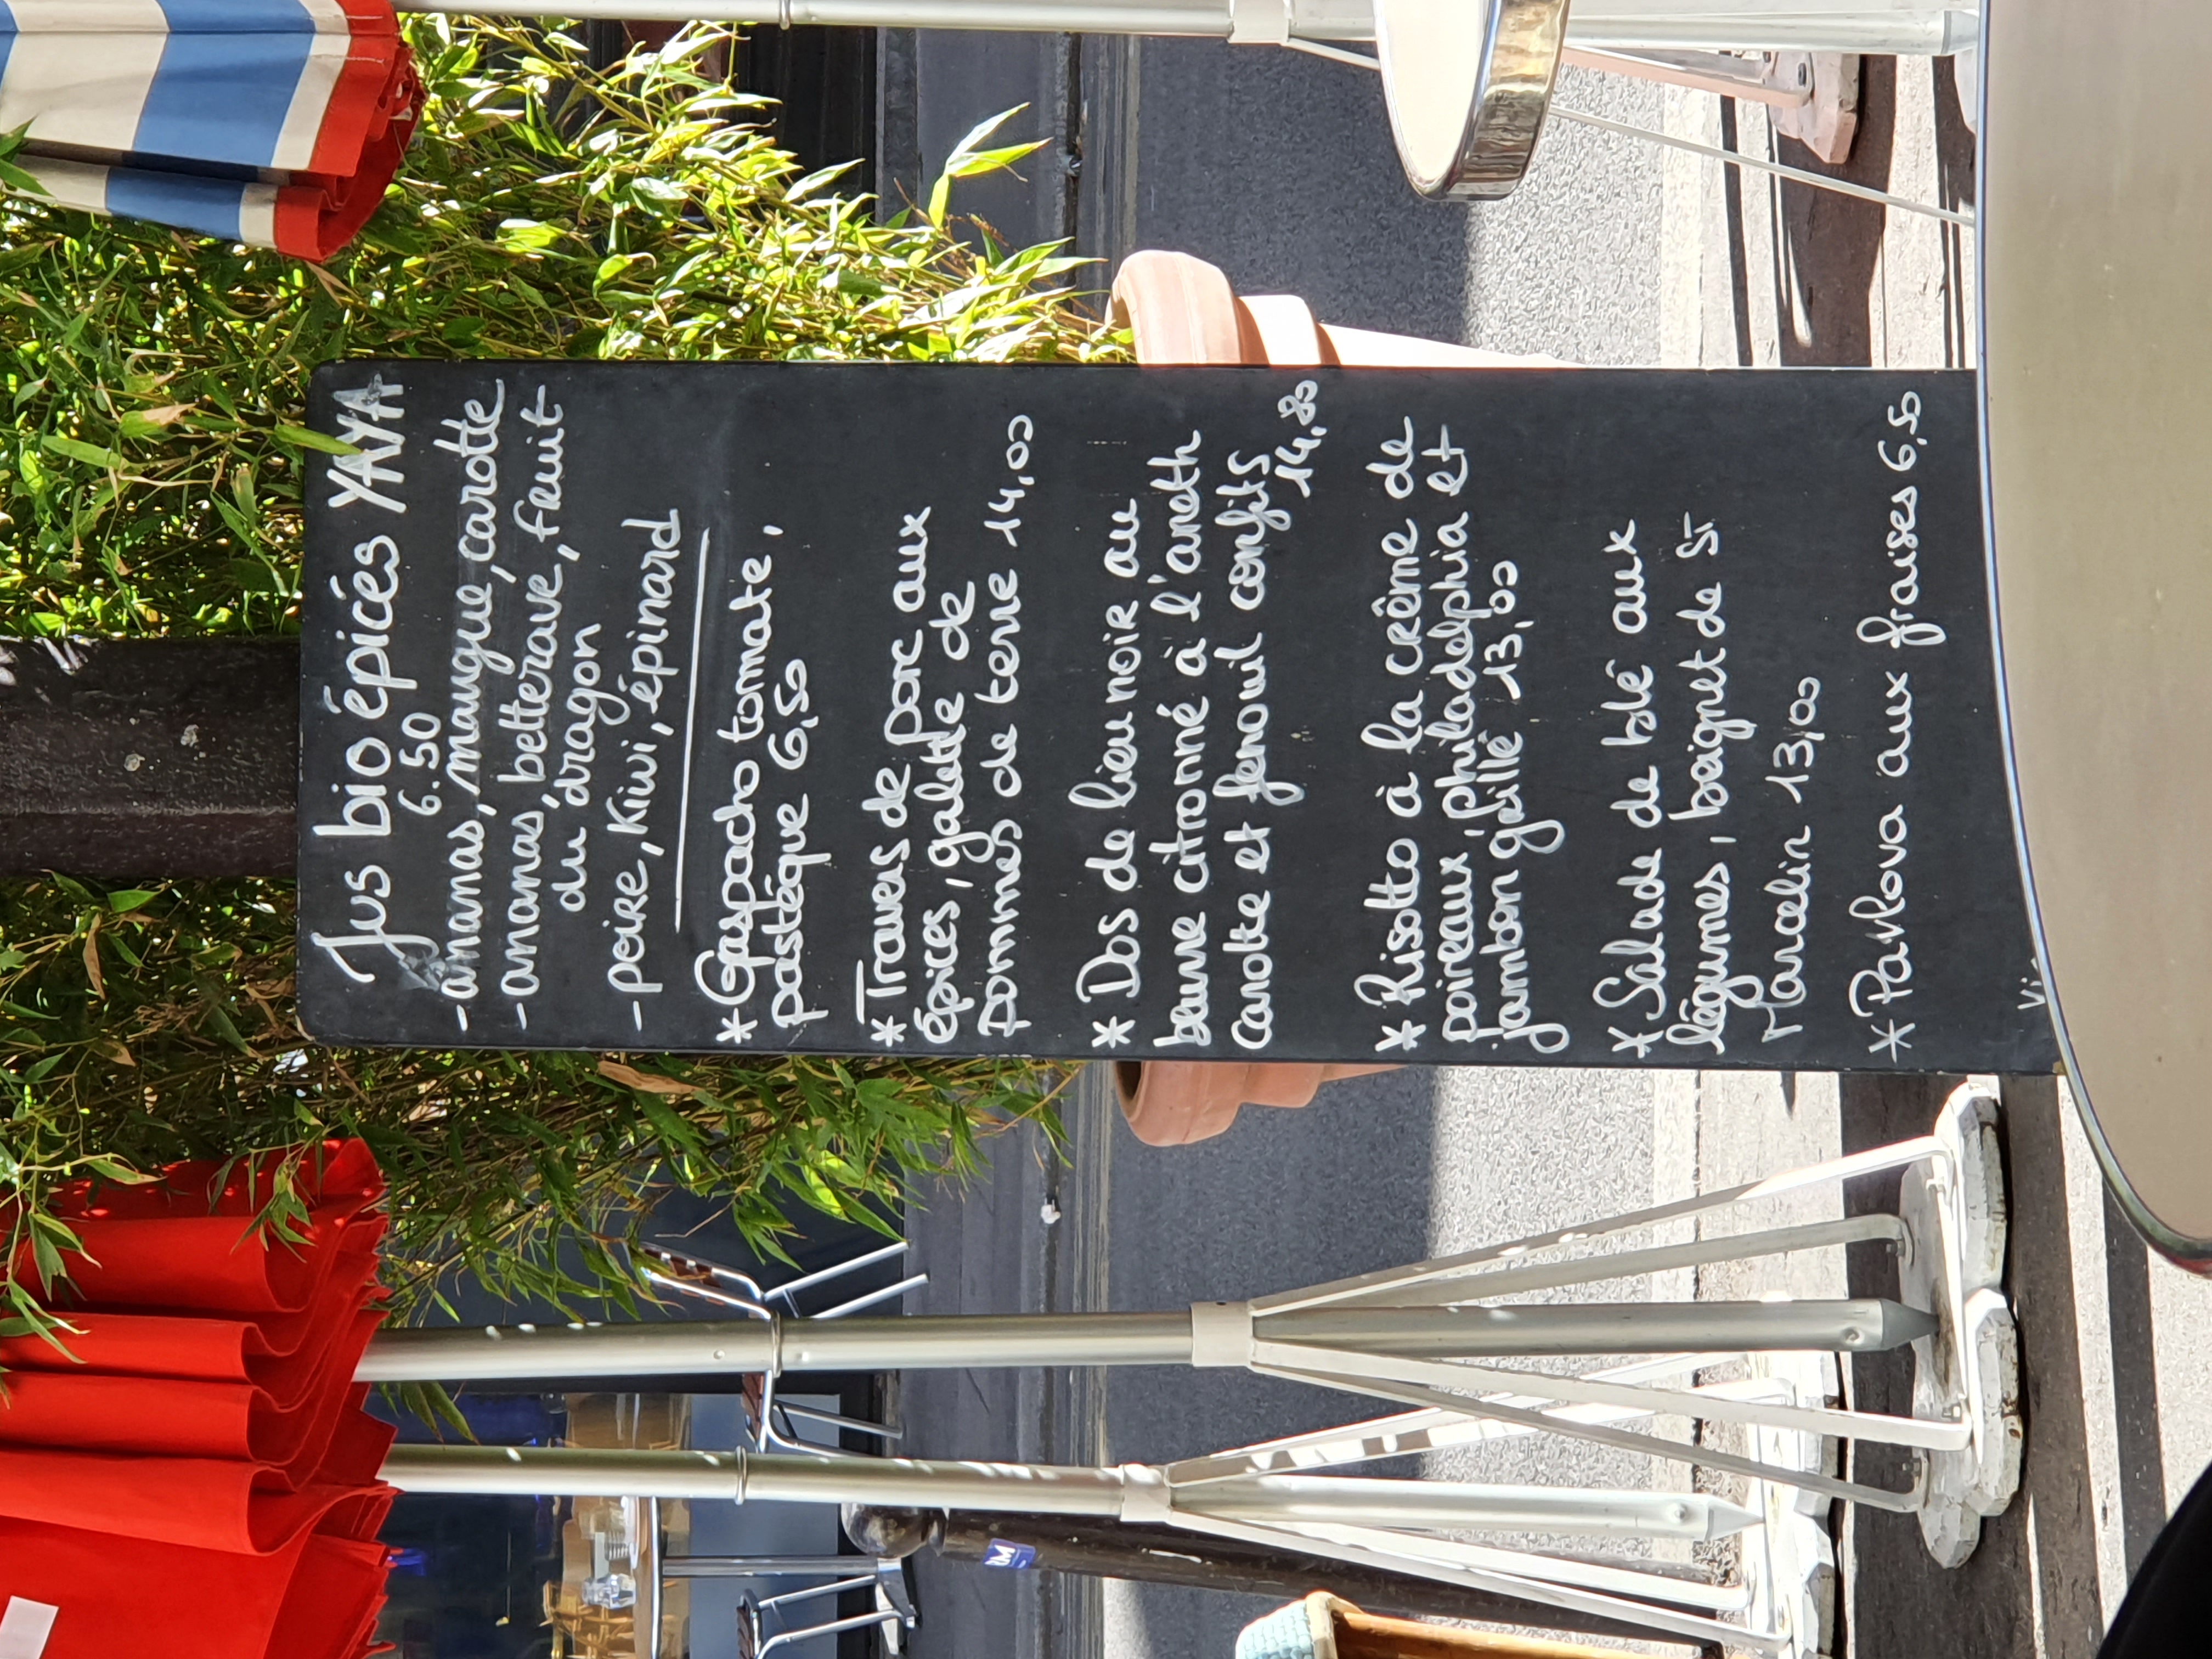 Jus bio épicés YAYA
6.50
-ananas, mangue, carotte
-ananas, betterave, fruit
du dragon
-poire, Kiwi, épinard
*Gaspacho tomate,
pastèque 6,50
*Travers de porc aux
épices, galette de
pommes de terre 14,00
*Dos de lieu noir au
beurre citronné à l'aneth
carotte et fenouil confits
14,80
*Risotto à la crème de
poireaux, philadelphia et
jambon grillé 13,00
*Salade de blé aux
légumes, beignet de St
Marcelin 13,00
*Pavlova aux fraises 6,50